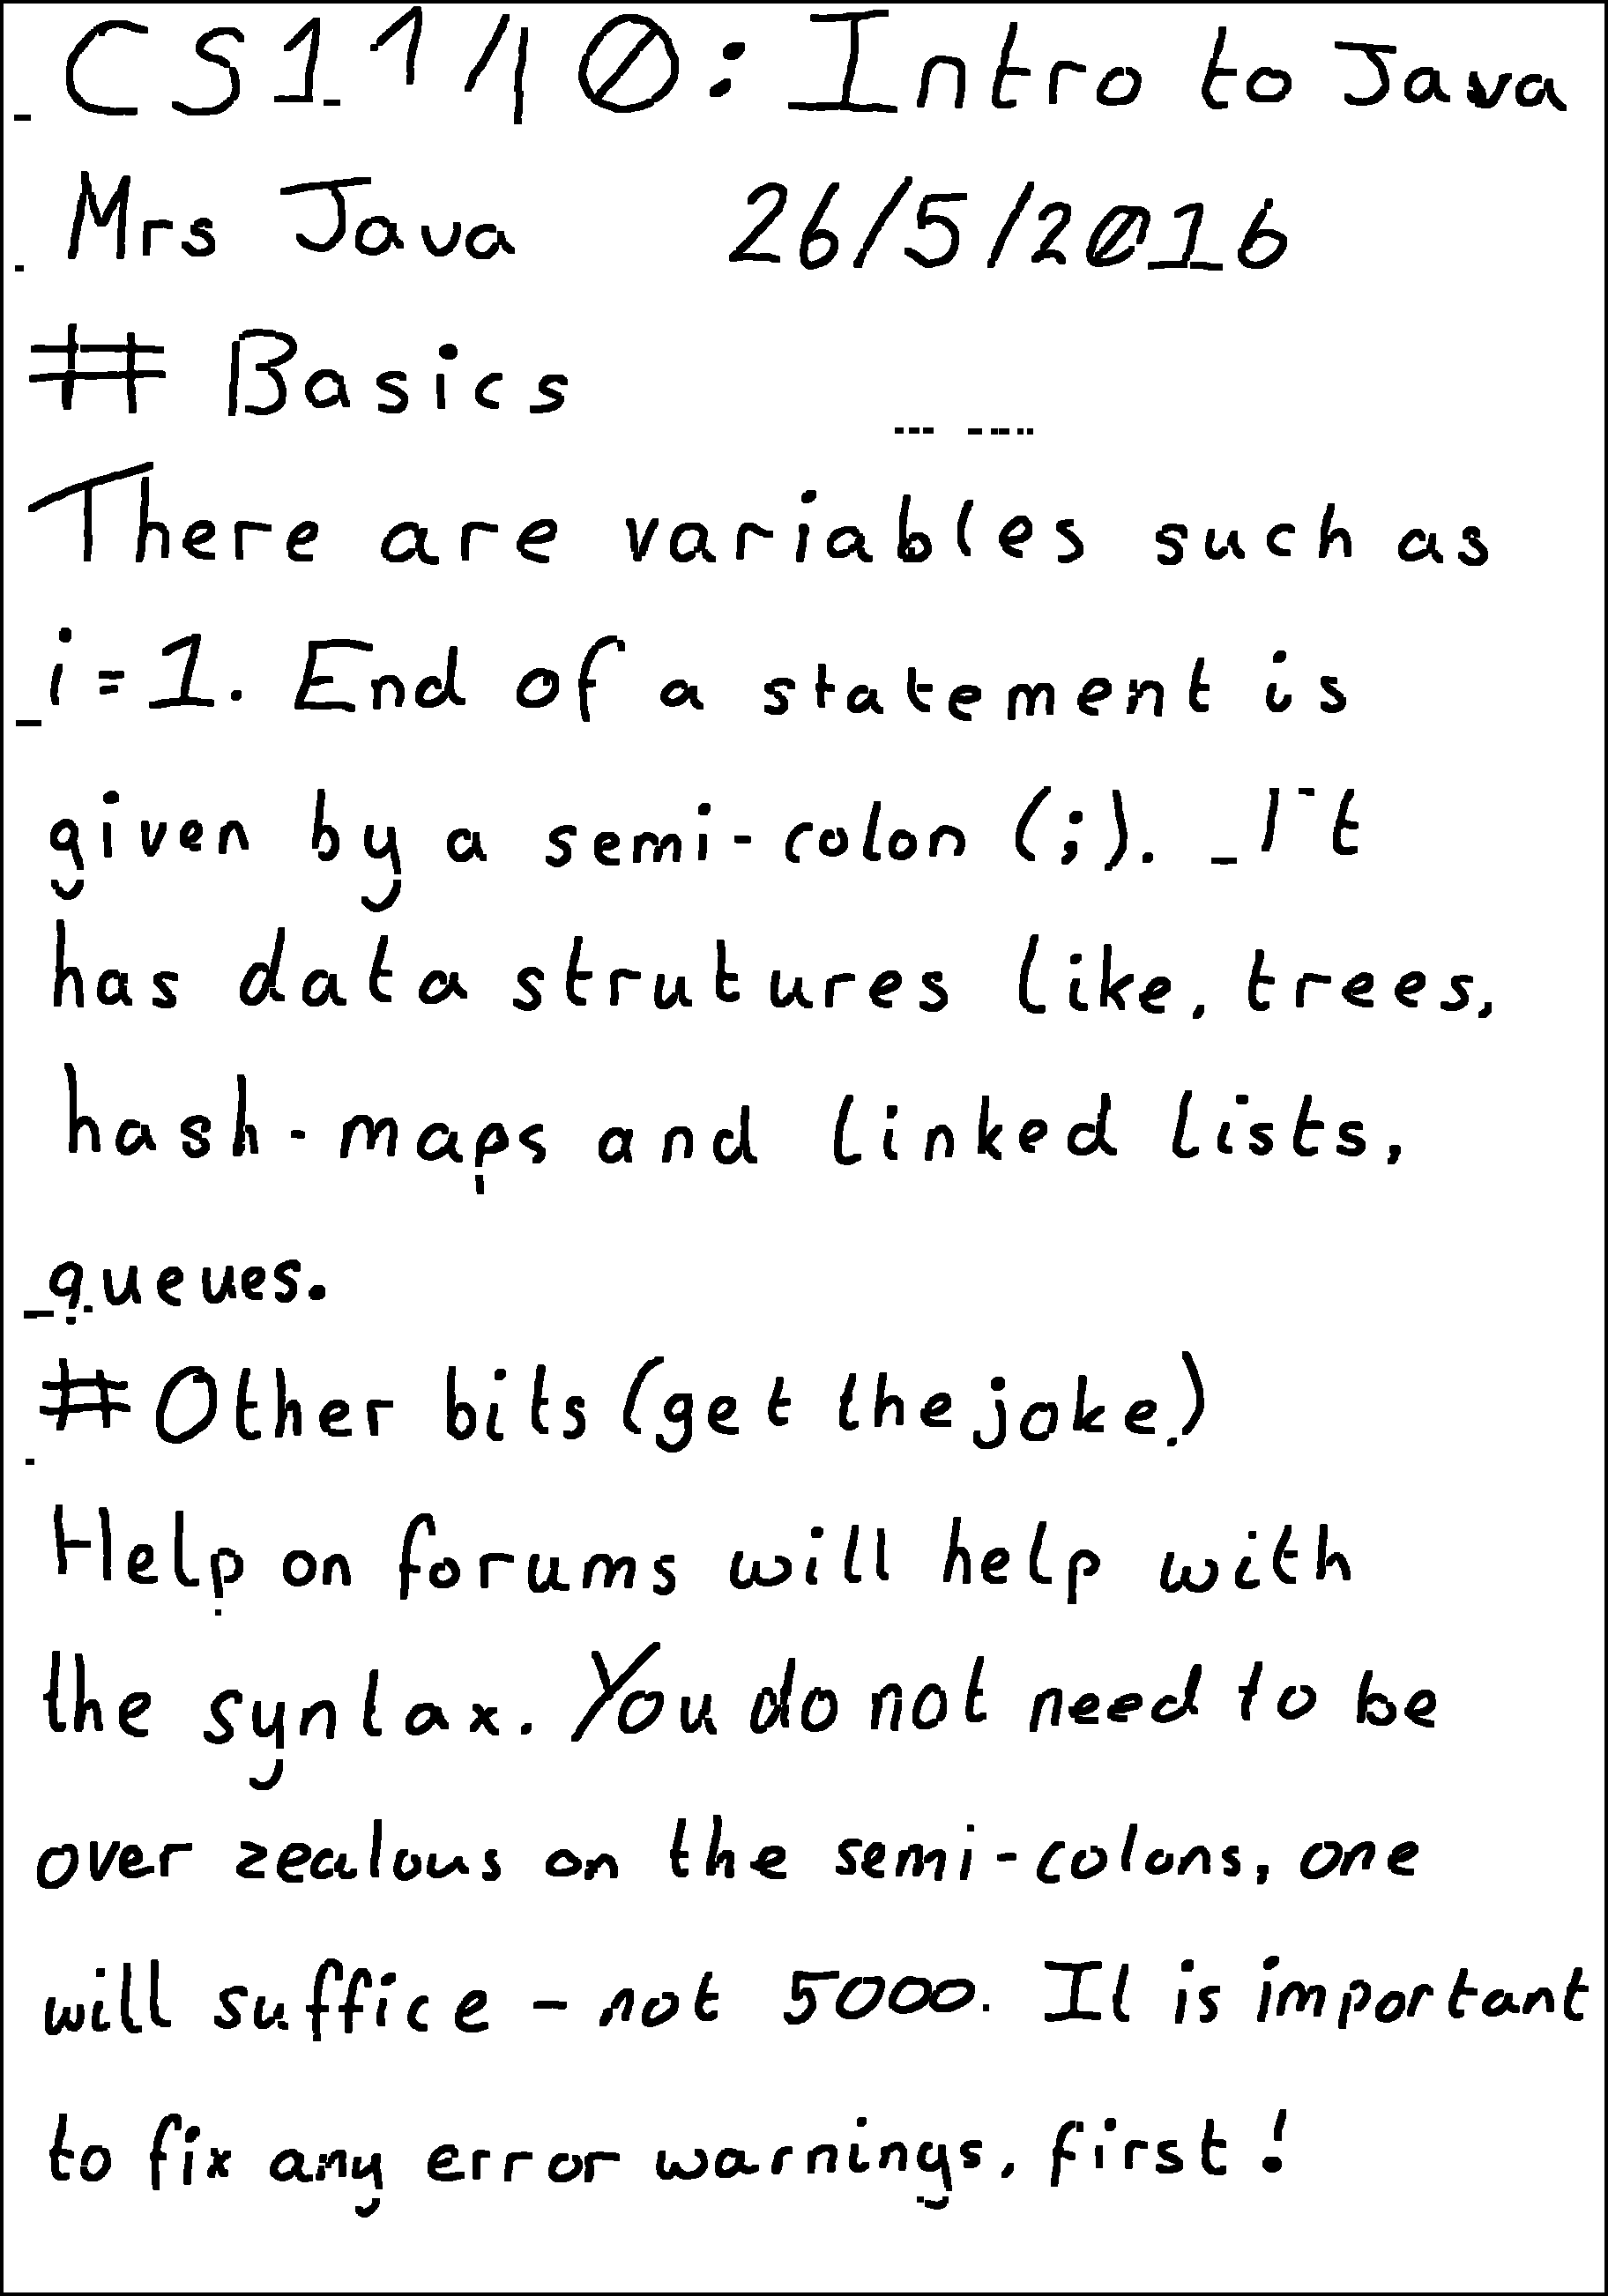 CS11/10: Intro to Java
Mrs Java 26/5/2016
# Basics
There are variables such as
i = 1. End of a statement is
given by a semi-colon (;). It
has data strutures like, trees,
hash-maps and linked lists,
queues.
# Other bits (get the joke.)
Help on forums will help with
the syntax. You do not need to be
over zealous on the semi-colons, one
will suffice - not 5000. It is important
to fix any error warnings, first!